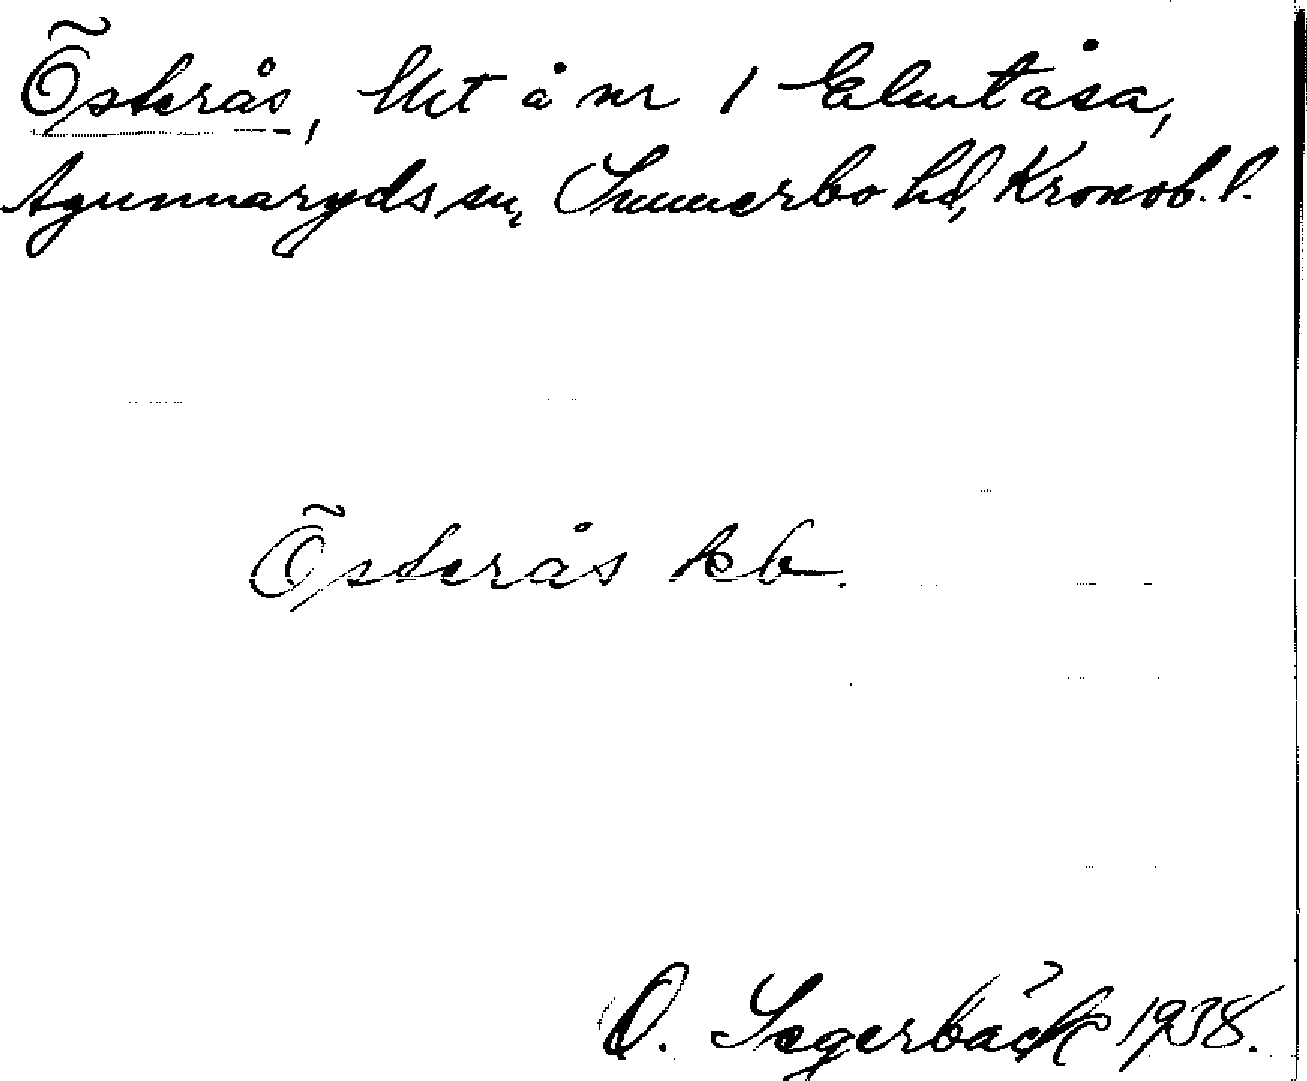 Österås, lht å nr 1 Elmtåsa,
Agunnaryds sn, Sunnerbo hd, Kronob. l.
Österås kb.
O. Sagerbäck 1938.